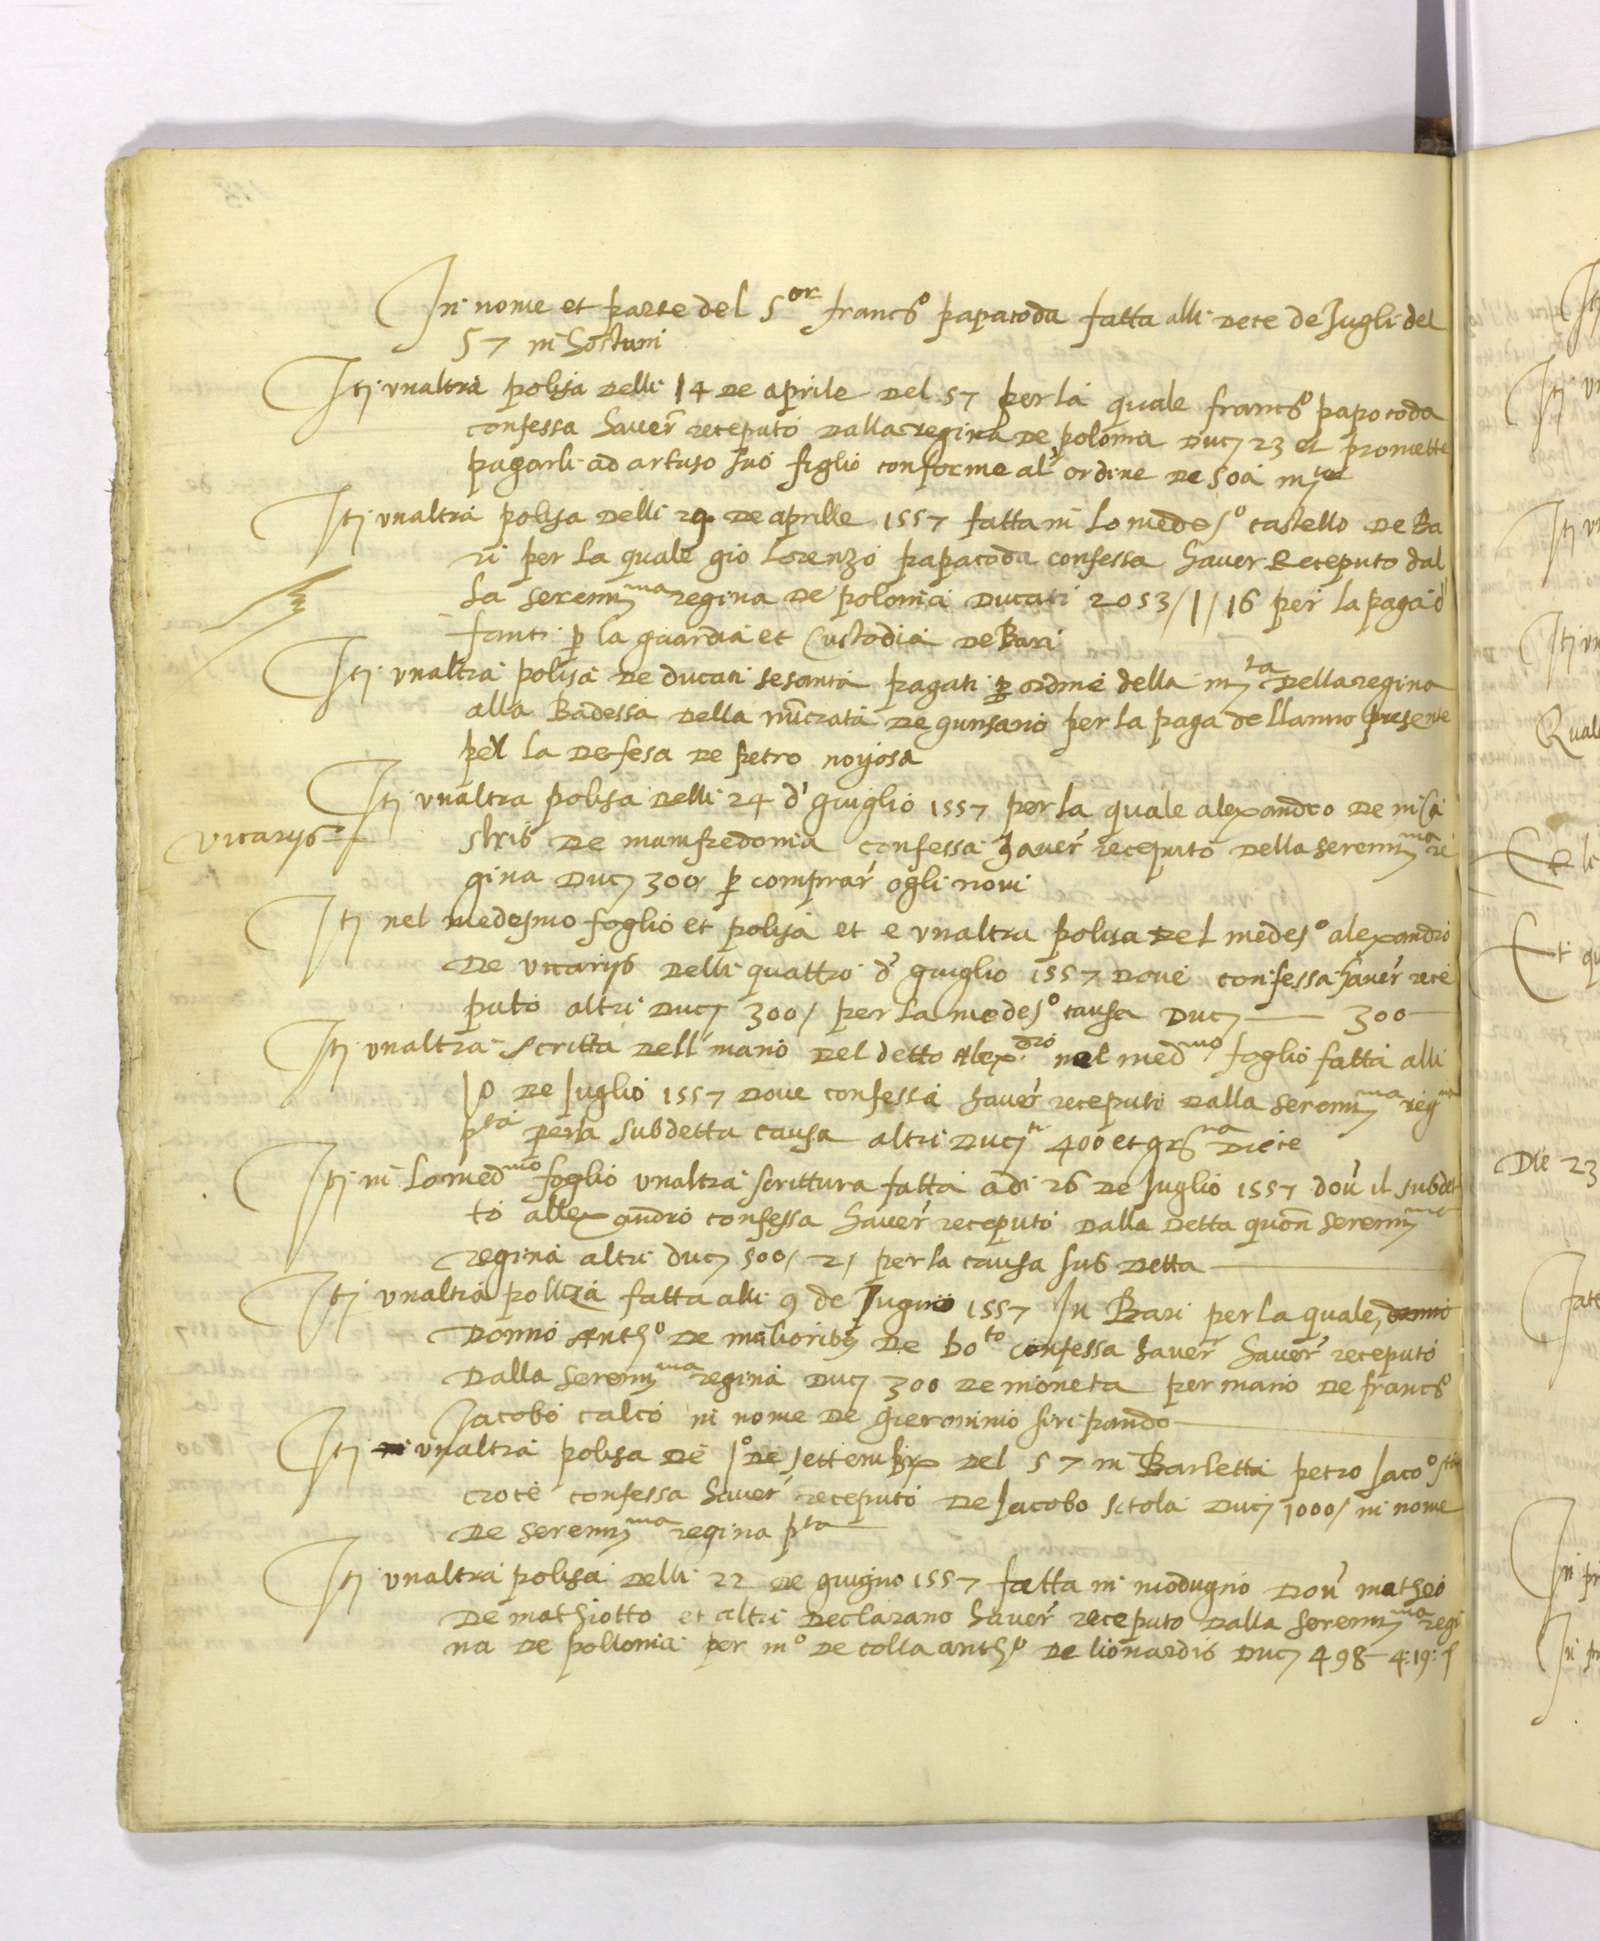 In nome et parte del S.or franc.o papacoda fatta alli dece de Iugli del
57 in hostuni
Itj unaltra polisa delli 14 de aprile del 57 per la quale franc.o papocoda
confessa haver receputo dalla regina de polonia duc. 23 et promette
pagarli ad artuso suo figlio conforme al ordine de soa m.tà
Itj unaltra polisa delli 29 de aprille 1557 fatta in lo medes.o castello de Ba
ri per la quale gio lorenzo papacoda confessa haver receputo dal
la serenis.ma regina de polonia ducati 2053/1/16 per la paga d'
fanti p la guardia et Custodia de Bari
Itj unaltra polisa de ducati sesanta pagati p ordine della m.ta della regina
alla Badessa della nuciata de gunsano per la paga dellanno presente
per la defesa de petro noyosa
Itj unaltra polisa delli 24 d' guiglio 1557 per la quale alexandro de
vicarys
de manfredonia confessa haver receputo della serenis.ma re
gina duc. 300 p comprar ogli novi
Itj nel medesmo foglio et polisa et e unaltra polisa del medes.o alexandro
de vicarys delli quattro d' guiglio 1557 dove confessa haver rece
puto altri duc. 300/ per la medes.o causa duc. — 300 —
Itj unaltra scritta dell mano del detto Alex.dro nel med.mo foglio fatta alli
10 de Iuglio 1557 dove confessa haver receputi dalla serenis.ma reg.na
p.ta per la subdetta causa altri duc.ti 400 et gr.na diece
Itj in lo med.mo foglio unaltra scrittura fatta adi 26 de Iuglio 1557 dov' il subdet
to allexandro confessa haver receputo dalla detta quon serenis.ma
regina altri duc. 500/ 2/ per la causa sub detta
Itj unaltra poliza fatta alli 9 de Iugnio 1557 In Bari per la quale, donno
Donno Anth.o de melioribus de bo.to confessa haver haver receputo
dalla serenis.ma regina duc. 300 de moneta per mano de franc.o
Jacobo calco in nome de gieronimo siripando
Itj unaltra polisa de Io de settembre del 57 in Barletta petro Iaco.o
croce confessa haver receputo de Jacobo scola duc. 1000/ in nome
de serenis.ma regina p.ta
Itj unaltra polisa delli 22 de guigno 1557 fatta in modugno dov' matheo
de mathiotto et altri declarano haver receputo dalla serenis.ma regi
na de pollonia per m.o de colla anth.o de lionardis duc. 498 - 4:19: